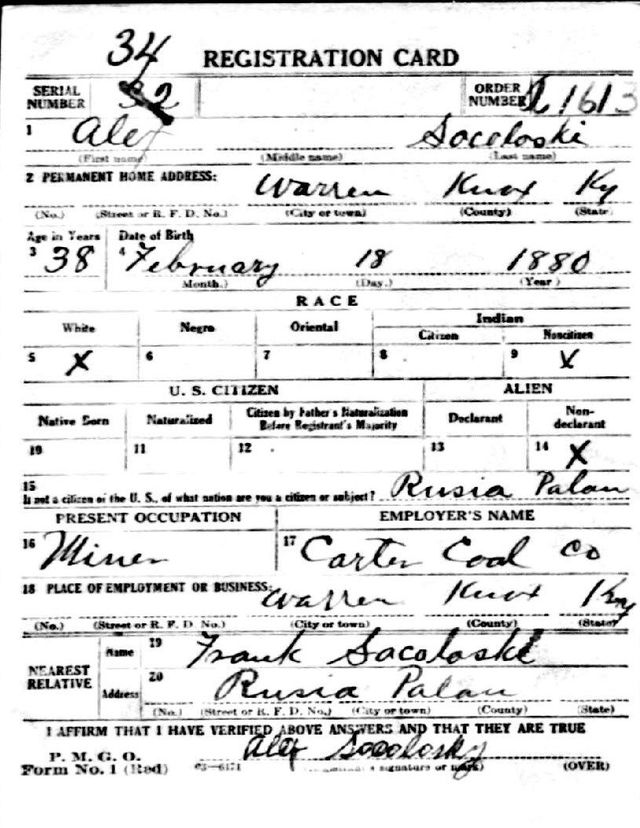 34
REGISTRATION CARD
SERIAL NUMBER 32 ORDER NUMBER 1613
1 Alex Socoloski
(First name) (Middle name) (Last name)
2 PERMANENT HOME ADDRESS: Warren Knox Ky
(No.) (Street or R. F. D. No.) (City or town) (County) (State)
Age in Years Date of Birth
3 38 4 February 18 1880
(Month.) (Day.) (Year)
RACE
White Negro Oriental Indian
Citizen Noncitizen
5 X 6 7 8 9 X
U. S. CITIZEN ALIEN
Native Born Naturalized Citizen by Father's Naturalization Before Registrant's Majority Declarant Non-declarant
10 11 12 13 14 X
15
If not a citizen of the U. S., of what nation are you a citizen or subject? Rusia Polan
PRESENT OCCUPATION EMPLOYER'S NAME
16 Miner 17 Carter Coal Co
18 PLACE OF EMPLOYMENT OR BUSINESS: Warren Knox Ky
(No.) (Street or R. F. D. No.) (City or town) (County) (State)
NEAREST RELATIVE Name 19 Frank Sacoloski
Address 20 Rusia Polan
(No.) (Street or R. F. D. No.) (City or town) (County) (State)
I AFFIRM THAT I HAVE VERIFIED ABOVE ANSWERS AND THAT THEY ARE TRUE
P. M. G. O.
Form No. 1 (Red) 03-6171 Alex Socolosky
(Registrant's signature or mark) (OVER)